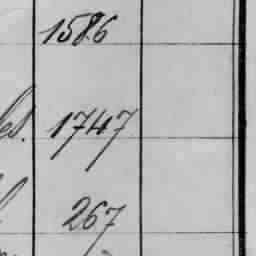 1586
es. 1747
267